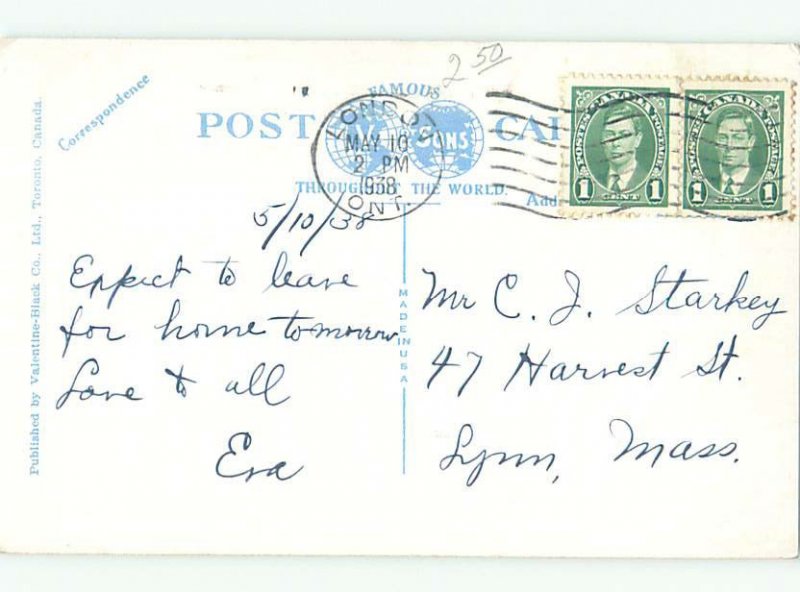 2 50
FAMOUS
POST CA
THROUGHOUT THE WORLD.
Correspondence
Add
LONDON
MAY 10
2 PM
1938
ONT.
POSTES CANADA POSTAGE
1 CENT 1
POSTES CANADA POSTAGE
1 CENT 1
5/10/38
Expect to leave
for home tomorrow
Love to all
Eva
Mr C. J. Starkey
47 Harvest St.
Lynn, Mass.
MADE IN USA
Published by Valentine-Black Co., Ltd., Toronto, Canada.